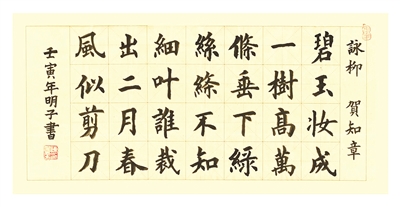 詠柳 賀知章
碧玉妆成
一樹高萬
條垂下綠
絲絛不知
細叶誰裁
出二月春
風似剪刀
壬寅年明子書